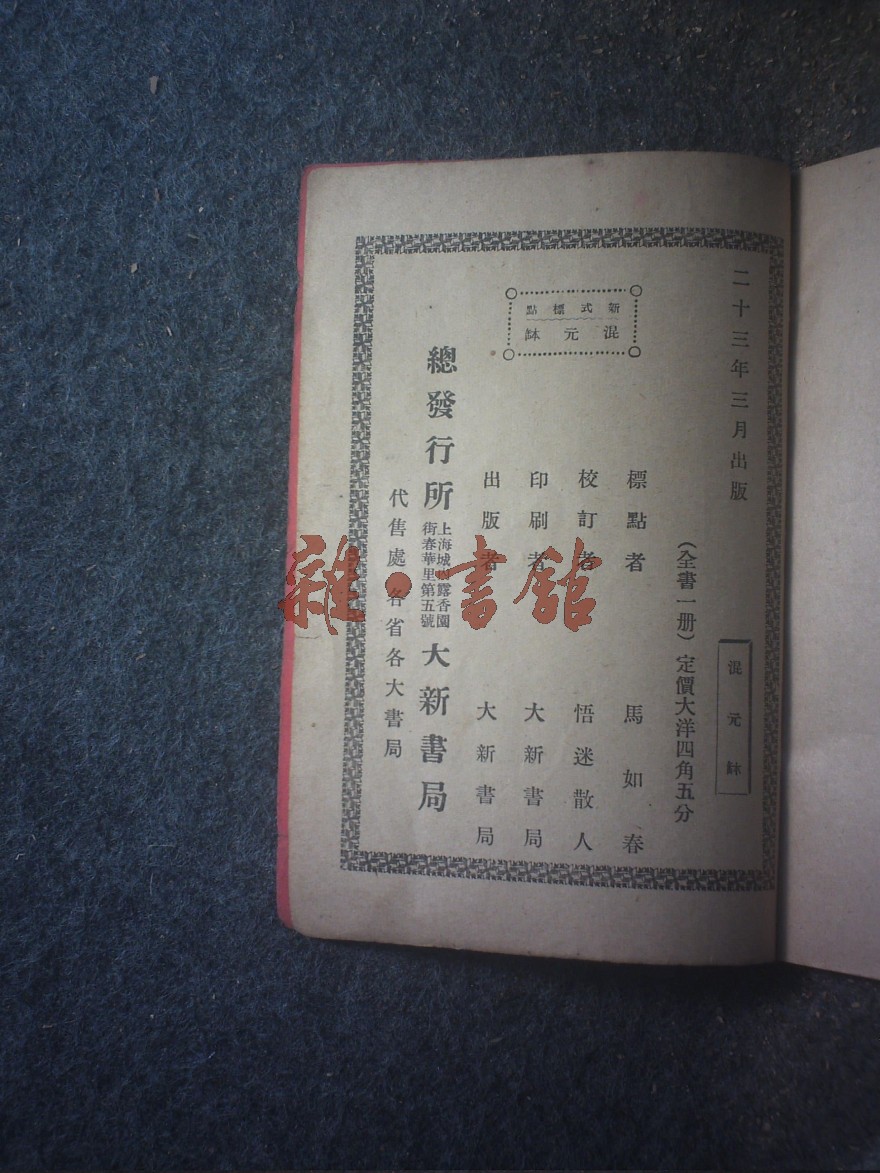 二十三年三月出版
混元缽
(全書一册)定價大洋四角五分
標點者 馬如春
校訂者 悟迷散人
印刷者 大新書局
出版者 大新書局
新式標點
混元缽
總發行所 上海城內露香園街春華里第五號 大新書局
代售處 各省各大書局
雜·書館